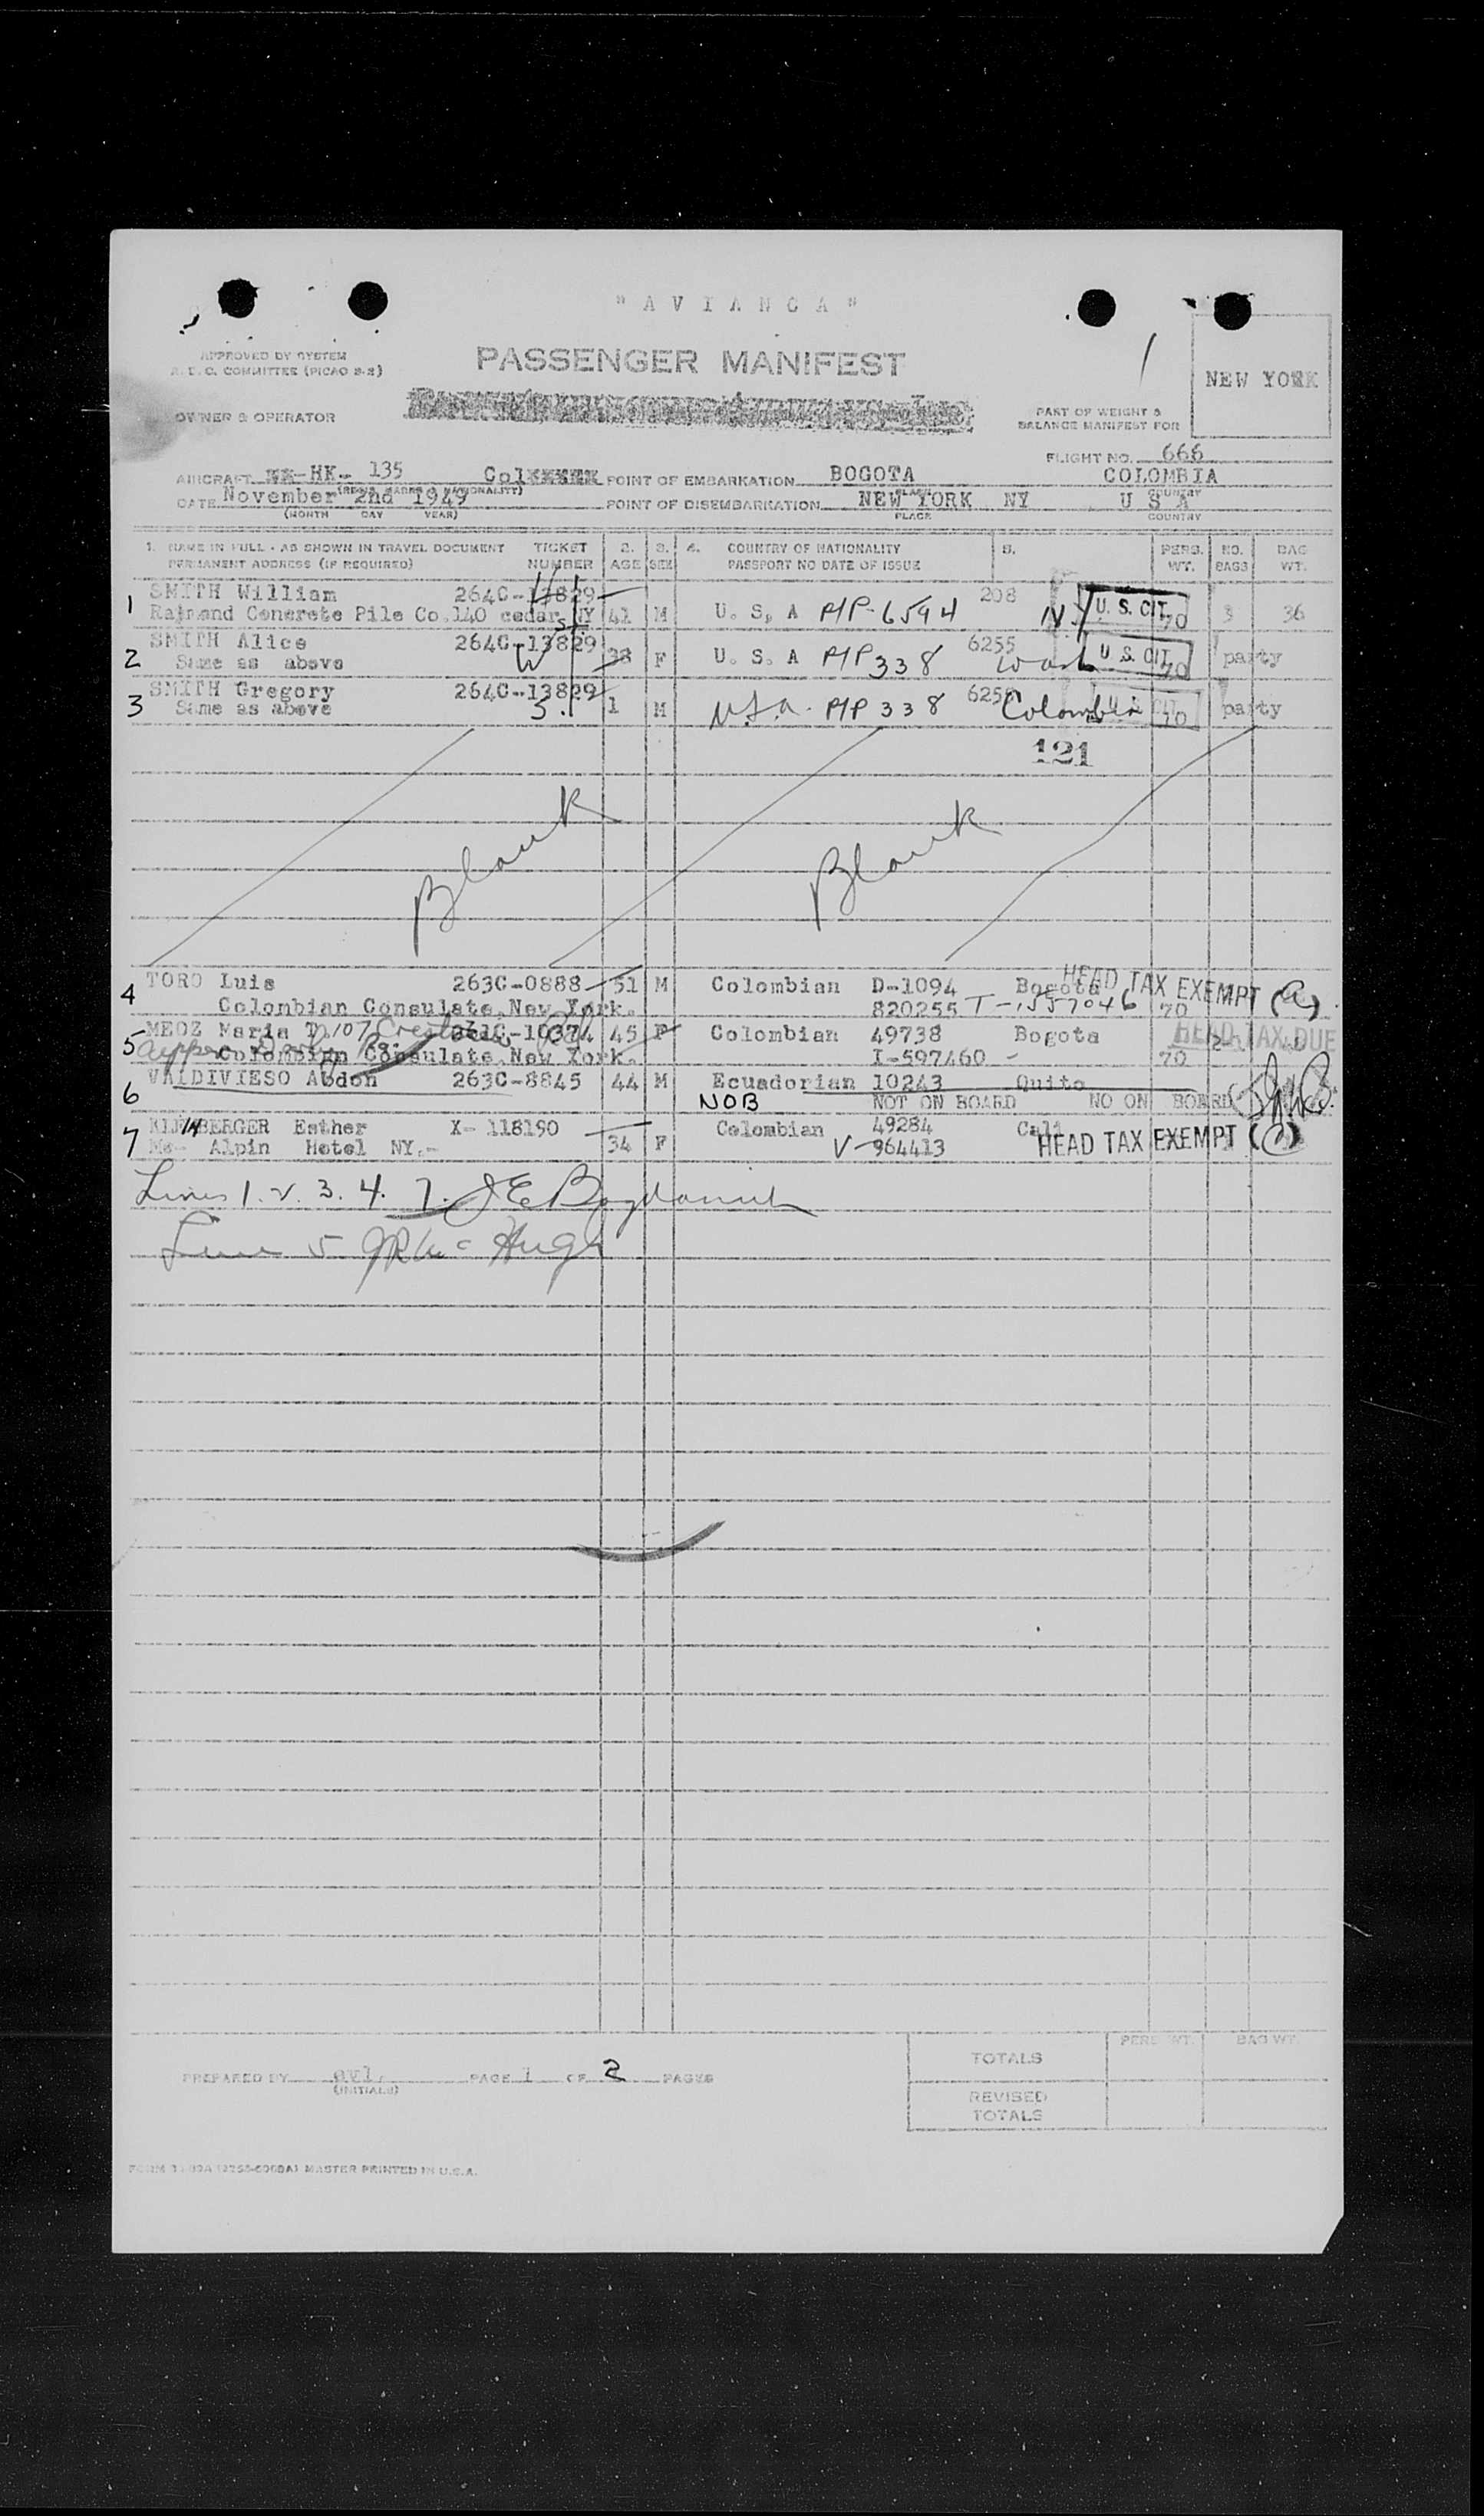 " A V I A N C A "
APPROVED BY SYSTEM
A.E.C. COMMITTEE (PICAO 2-2)
PASSENGER MANIFEST
NEW YORK
OWNER & OPERATOR
PART OF WEIGHT &
BALANCE MANIFEST FOR
FLIGHT NO. 666
AIRCRAFT HK- 135 Col POINT OF EMBARKATION BOGOTA COLOMBIA
PLACE COUNTRY
DATE November 2nd 1949 POINT OF DISEMBARKATION NEW YORK NY U S A
(MONTH DAY YEAR) PLACE COUNTRY
1. NAME IN FULL - AS SHOWN IN TRAVEL DOCUMENT TICKET 2. 3. 4. COUNTRY OF NATIONALITY 5. PERS. NO. BAG
PERMANENT ADDRESS (IF REQUIRED) NUMBER AGE SEX PASSPORT NO DATE OF ISSUE WT. BAGS WT.
1 SMITH William 264C-13829 208
Rajmond Concrete Pile Co.140 cedar St NY 41 M U. S, A P/P-6594 NY U. S. CIT. 70 3 36
2 SMITH Alice 264C-13829 6255
Same as above W 38 F U. S. A P/P 338 Wash U. S. CIT. 70 party
3 SMITH Gregory 264C-13829 6255
Same as above S. 1 M U.S.A. P/P 338 Colombia 70 party
121
Blank Blank
4 TORO Luis 263C-0888 51 M Colombian D-1094 Bogota HEAD TAX EXEMPT (a)
Colombian Consulate, New York. 820255 T-1557046 70
5 MEOZ Maria T 261C-10374 45 F Colombian 49738 Bogota HEAD TAX DUE
Colombian Consulate, New York. I-597460 - 70
6 VALDIVIESO Abdon 263C-8845 44 M Ecuadorian 10243 Quito
NOB NOT ON BOARD NO ON BOARD
7 BERGER Esther X- 118190 34 F Colombian 49284 Cali
Mc- Alpin Hotel NY.- V-964413 HEAD TAX EXEMPT (C)
Lines 1. 2. 3. 4. 7. J E
Line 5 JR McHugh
TOTALS PERS. WT. BAG WT.
PREPARED BY avl. PAGE 1 OF 2 PAGES
(INITIALS)
REVISED
TOTALS
MASTER PRINTED IN U.S.A.